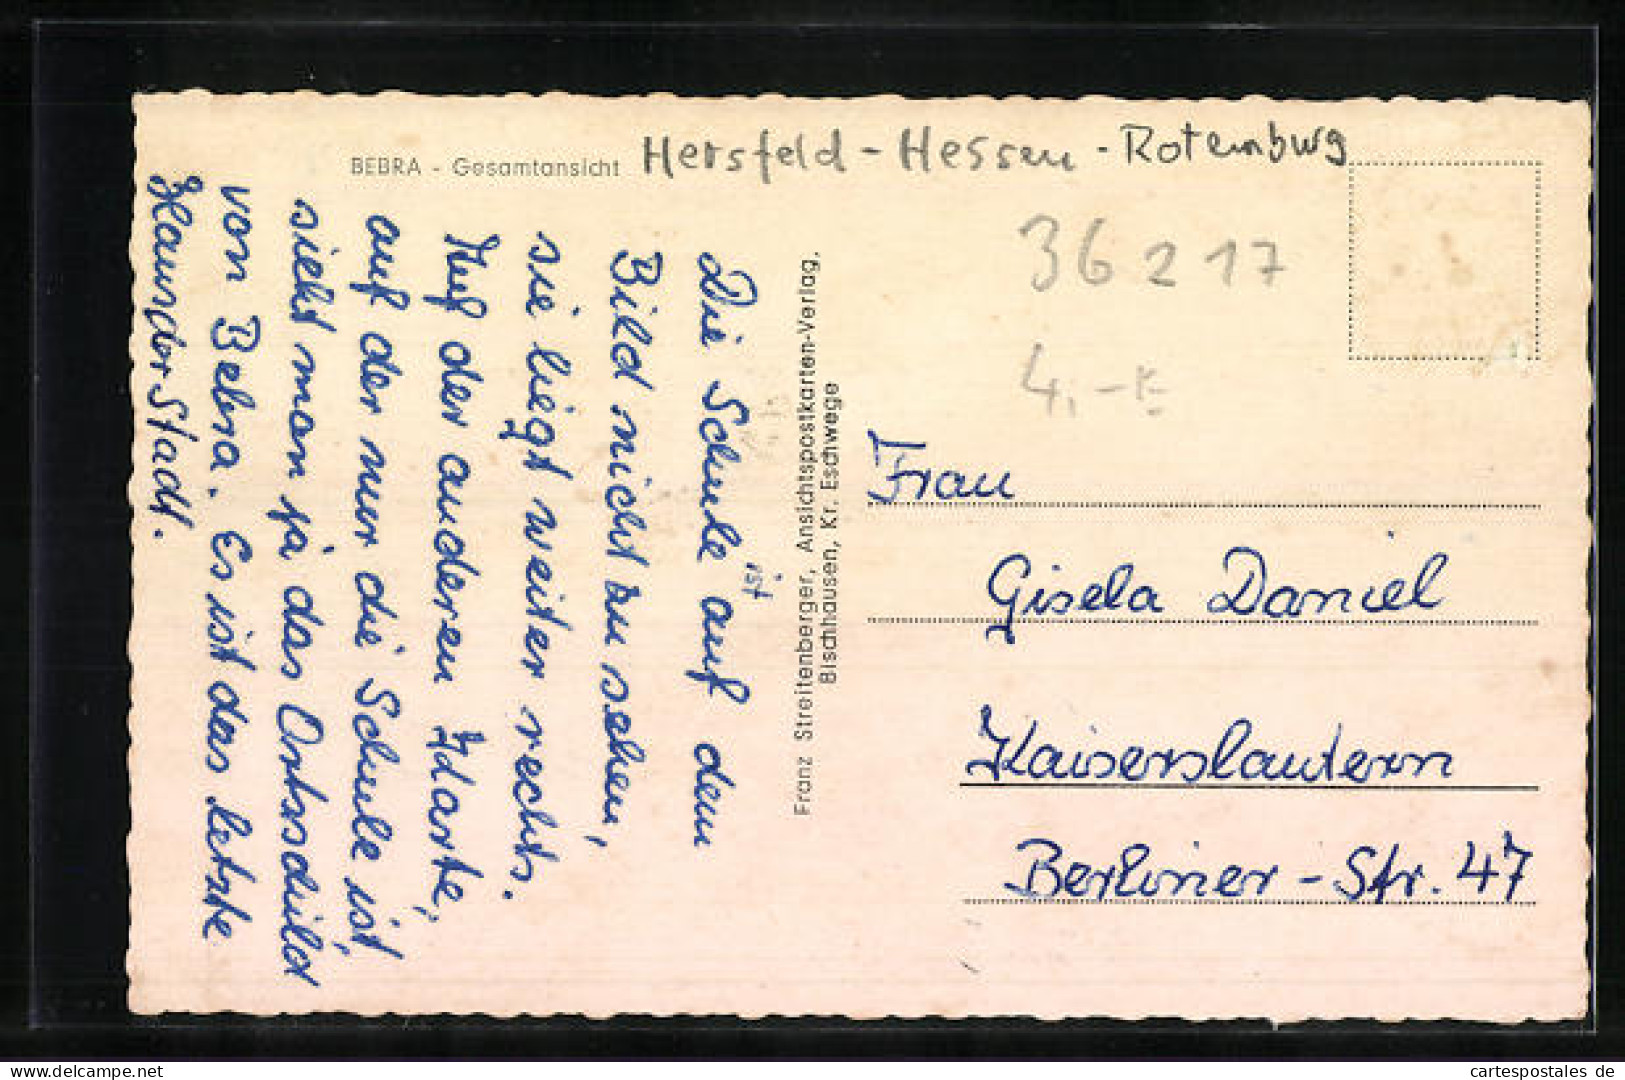 BEBRA - Gesamtansicht
Hersfeld - Hessen - Rotemburg
36217
4,-
Die Schule ist auf dem
Bild nicht zu sehen,
sie liegt weiter rechts.
Auf der anderen Karte,
auf der nur die Schule ist,
sieht man ja das Ortsschild
von Bebra. Es ist das letzte
Haus der Stadt.
Franz Streitenberger, Ansichtspostkarten-Verlag,
Bischhausen, Kr. Eschwege
Frau
Gisela Daniel
Kaiserslautern
Berliner-Str. 47
cartespostales de